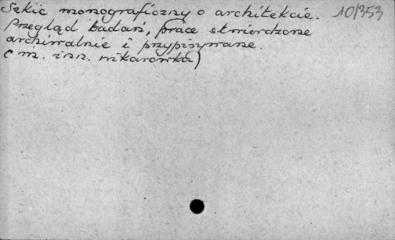 Szkic monograficzny o architekcie. 10/353
Przegląd badań, prace stwierdzone
archiwalnie i przypisywane.
( m. inn.